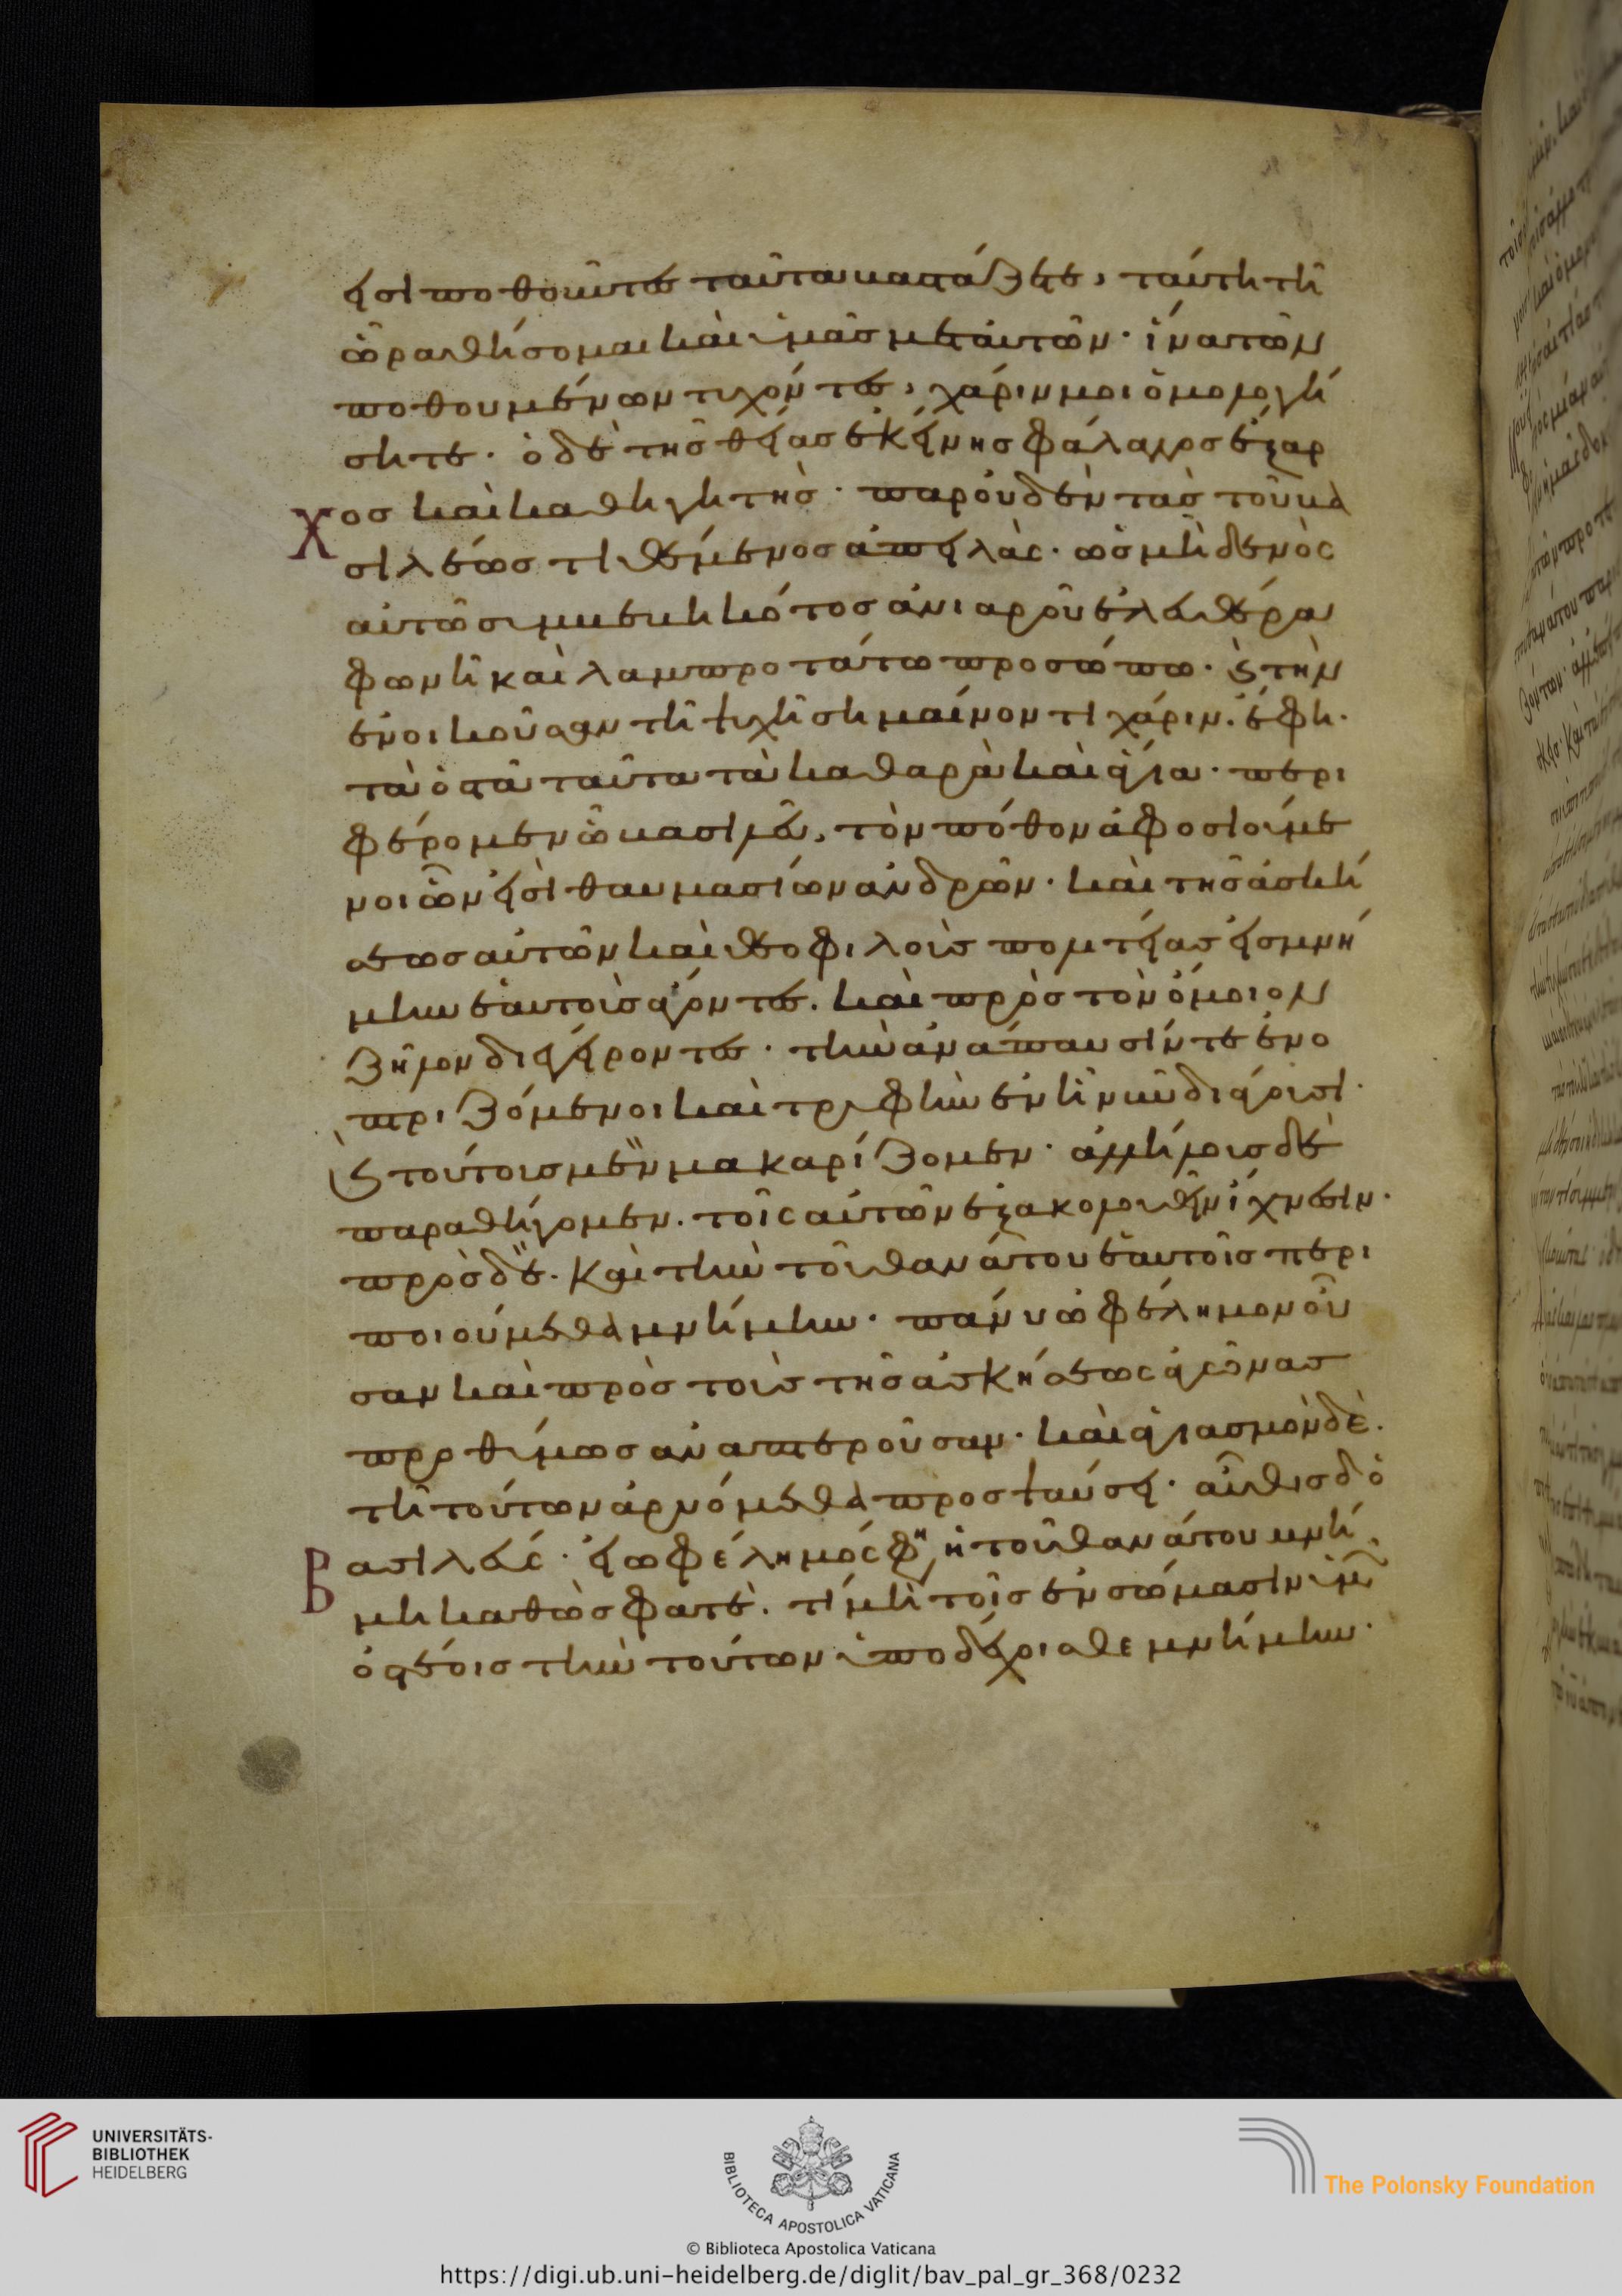 εἰσὶ ποθοῦντες ταῦτα βαστάζετε, ταύτη τῆ
ὥρα θήσομαι καὶ ὑμᾶς μετ' αὐτῶν· ἵνα τῶν
ποθουμένων τυχόντες, χάριν μοι ὁμολογή
σητε· ὁ δὲ τῆς θείας ἐκείνης φάλαγγος ἔξαρ
χος καὶ καθηγητὴς· παρ' οὐδὲν τὰς τοῦ βα
σιλέως τιθέμενος ἀπειλὰς· ὡς μὴδενὸς
αὐτῶ συμβεβηκότος ἀνιαροῦ ἐλευθέρα
φωνῆ καὶ λαμπροτάτω προσώπω· καὶ τὴν
ἐνοικοῦσαν τῆ ψυχῆ σημαίνοντι χάριν· ἔφη·
τὰ ὀστᾶ ταῦτα τὰ καθαρὰ καὶ ἅγια· περι
φέρομεν ὦ βασιλεῦ, τὸν πόθον ἀφοσιούμε
νοι ὧν εἰσὶ θαυμασίων ἀνδρῶν· καὶ τῆς ἀσκή
σεως αὐτῶν καὶ θεοφιλοῦς πολιτείας εἰς μνή
μην ἑαυτοὺς ἄγοντες. καὶ πρὸς τὸν ὅμοιον
ζῆλον διεγείροντες· τὴν ἀνάπαυσίν τε ἐνο
πτριζόμενοι καὶ τρυφὴν ἐν ἧ νῦν διάγουσι·
καὶ τούτους μὲν μακαρίζομεν· ἀλλήλους δὲ
παραθήγομεν. τοῖς αὐτῶν ἐξακολουθεῖν ἴχνεσιν·
πρὸς δὲ. καὶ τὴν τοῦ θανάτου ἑαυτοῖς περι
ποιούμεθα μνήμην· πάνυ ὠφέλημον οὖ
σαν καὶ πρὸς τοὺς τῆς ἀσκήσεως ἀγῶνας
προθύμως ἀναπτεροῦσαν· καὶ ἁγιασμὸν δὲ.
τῆ τούτων ἀρυόμεθα προσψαύσει· αὖθις δ' ὁ
βασιλεύς· εἰ ὠφέλημός φη, ἡ τοῦ θανάτου μνή
μη καθὼς φατὲ. τί μὴ τοῖς ἐν σώμασιν ὑμῶν
ὀστέοις τὴν τούτων ὑποδέχοισθε μνήμην·
UNIVERSITÄTS-
BIBLIOTHEK
HEIDELBERG
BIBLIOTECA APOSTOLICA VATICANA
© Biblioteca Apostolica Vaticana
The Polonsky Foundation
https://digi.ub.uni-heidelberg.de/diglit/bav_pal_gr_368/0232